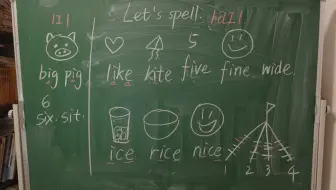 Let's spell. /aɪ/
/ɪ/
5
big pig
like kite five fine wide.
6
six. sit.
ice rice nice
1 2 3 4